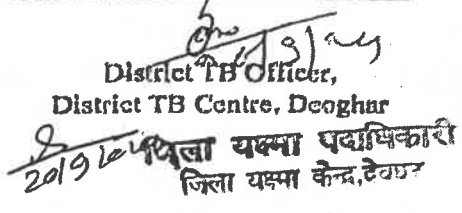 District TB Officer,
District TB Centre, Deoghar
जिला यक्ष्मा पदाधिकारी
20/9
जिला यक्ष्मा केन्द्र, देवघर